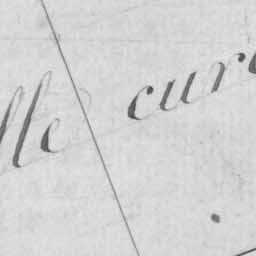 lle cure